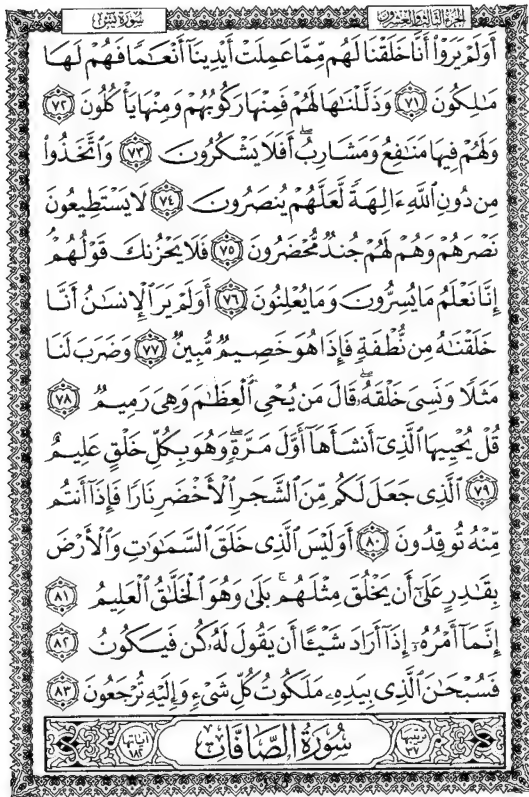 سُورَةُ يسٓ الجزء الثالث والعشرون
أَوَلَمْ يَرَوْا۟ أَنَّا خَلَقْنَا لَهُم مِّمَّا عَمِلَتْ أَيْدِينَآ أَنْعَٰمًا فَهُمْ لَهَا
مَٰلِكُونَ ٧١ وَذَلَّلْنَٰهَا لَهُمْ فَمِنْهَا رَكُوبُهُمْ وَمِنْهَا يَأْكُلُونَ ٧٢
وَلَهُمْ فِيهَا مَنَٰفِعُ وَمَشَارِبُ ۖ أَفَلَا يَشْكُرُونَ ٧٣ وَٱتَّخَذُوا۟
مِن دُونِ ٱللَّهِ ءَالِهَةً لَّعَلَّهُمْ يُنصَرُونَ ٧٤ لَا يَسْتَطِيعُونَ
نَصْرَهُمْ وَهُمْ لَهُمْ جُندٌ مُّحْضَرُونَ ٧٥ فَلَا يَحْزُنكَ قَوْلُهُمْ
إِنَّا نَعْلَمُ مَا يُسِرُّونَ وَمَا يُعْلِنُونَ ٧٦ أَوَلَمْ يَرَ ٱلْإِنسَٰنُ أَنَّا
خَلَقْنَٰهُ مِن نُّطْفَةٍ فَإِذَا هُوَ خَصِيمٌ مُّبِينٌ ٧٧ وَضَرَبَ لَنَا
مَثَلًا وَنَسِىَ خَلْقَهُۥ ۖ قَالَ مَن يُحْىِ ٱلْعِظَٰمَ وَهِىَ رَمِيمٌ ٧٨
قُلْ يُحْيِيهَا ٱلَّذِىٓ أَنشَأَهَآ أَوَّلَ مَرَّةٍ ۖ وَهُوَ بِكُلِّ خَلْقٍ عَلِيمٌ
٧٩ ٱلَّذِى جَعَلَ لَكُم مِّنَ ٱلشَّجَرِ ٱلْأَخْضَرِ نَارًا فَإِذَآ أَنتُم
مِّنْهُ تُوقِدُونَ ٨٠ أَوَلَيْسَ ٱلَّذِى خَلَقَ ٱلسَّمَٰوَٰتِ وَٱلْأَرْضَ
بِقَٰدِرٍ عَلَىٰٓ أَن يَخْلُقَ مِثْلَهُم ۚ بَلَىٰ وَهُوَ ٱلْخَلَّٰقُ ٱلْعَلِيمُ ٨١
إِنَّمَآ أَمْرُهُۥٓ إِذَآ أَرَادَ شَيْـًٔا أَن يَقُولَ لَهُۥ كُن فَيَكُونُ ٨٢
فَسُبْحَٰنَ ٱلَّذِى بِيَدِهِۦ مَلَكُوتُ كُلِّ شَىْءٍ وَإِلَيْهِ تُرْجَعُونَ ٨٣
ترتيبها ٣٧ سُورَةُ الصَّافَّاتِ آياتها ١٨٢